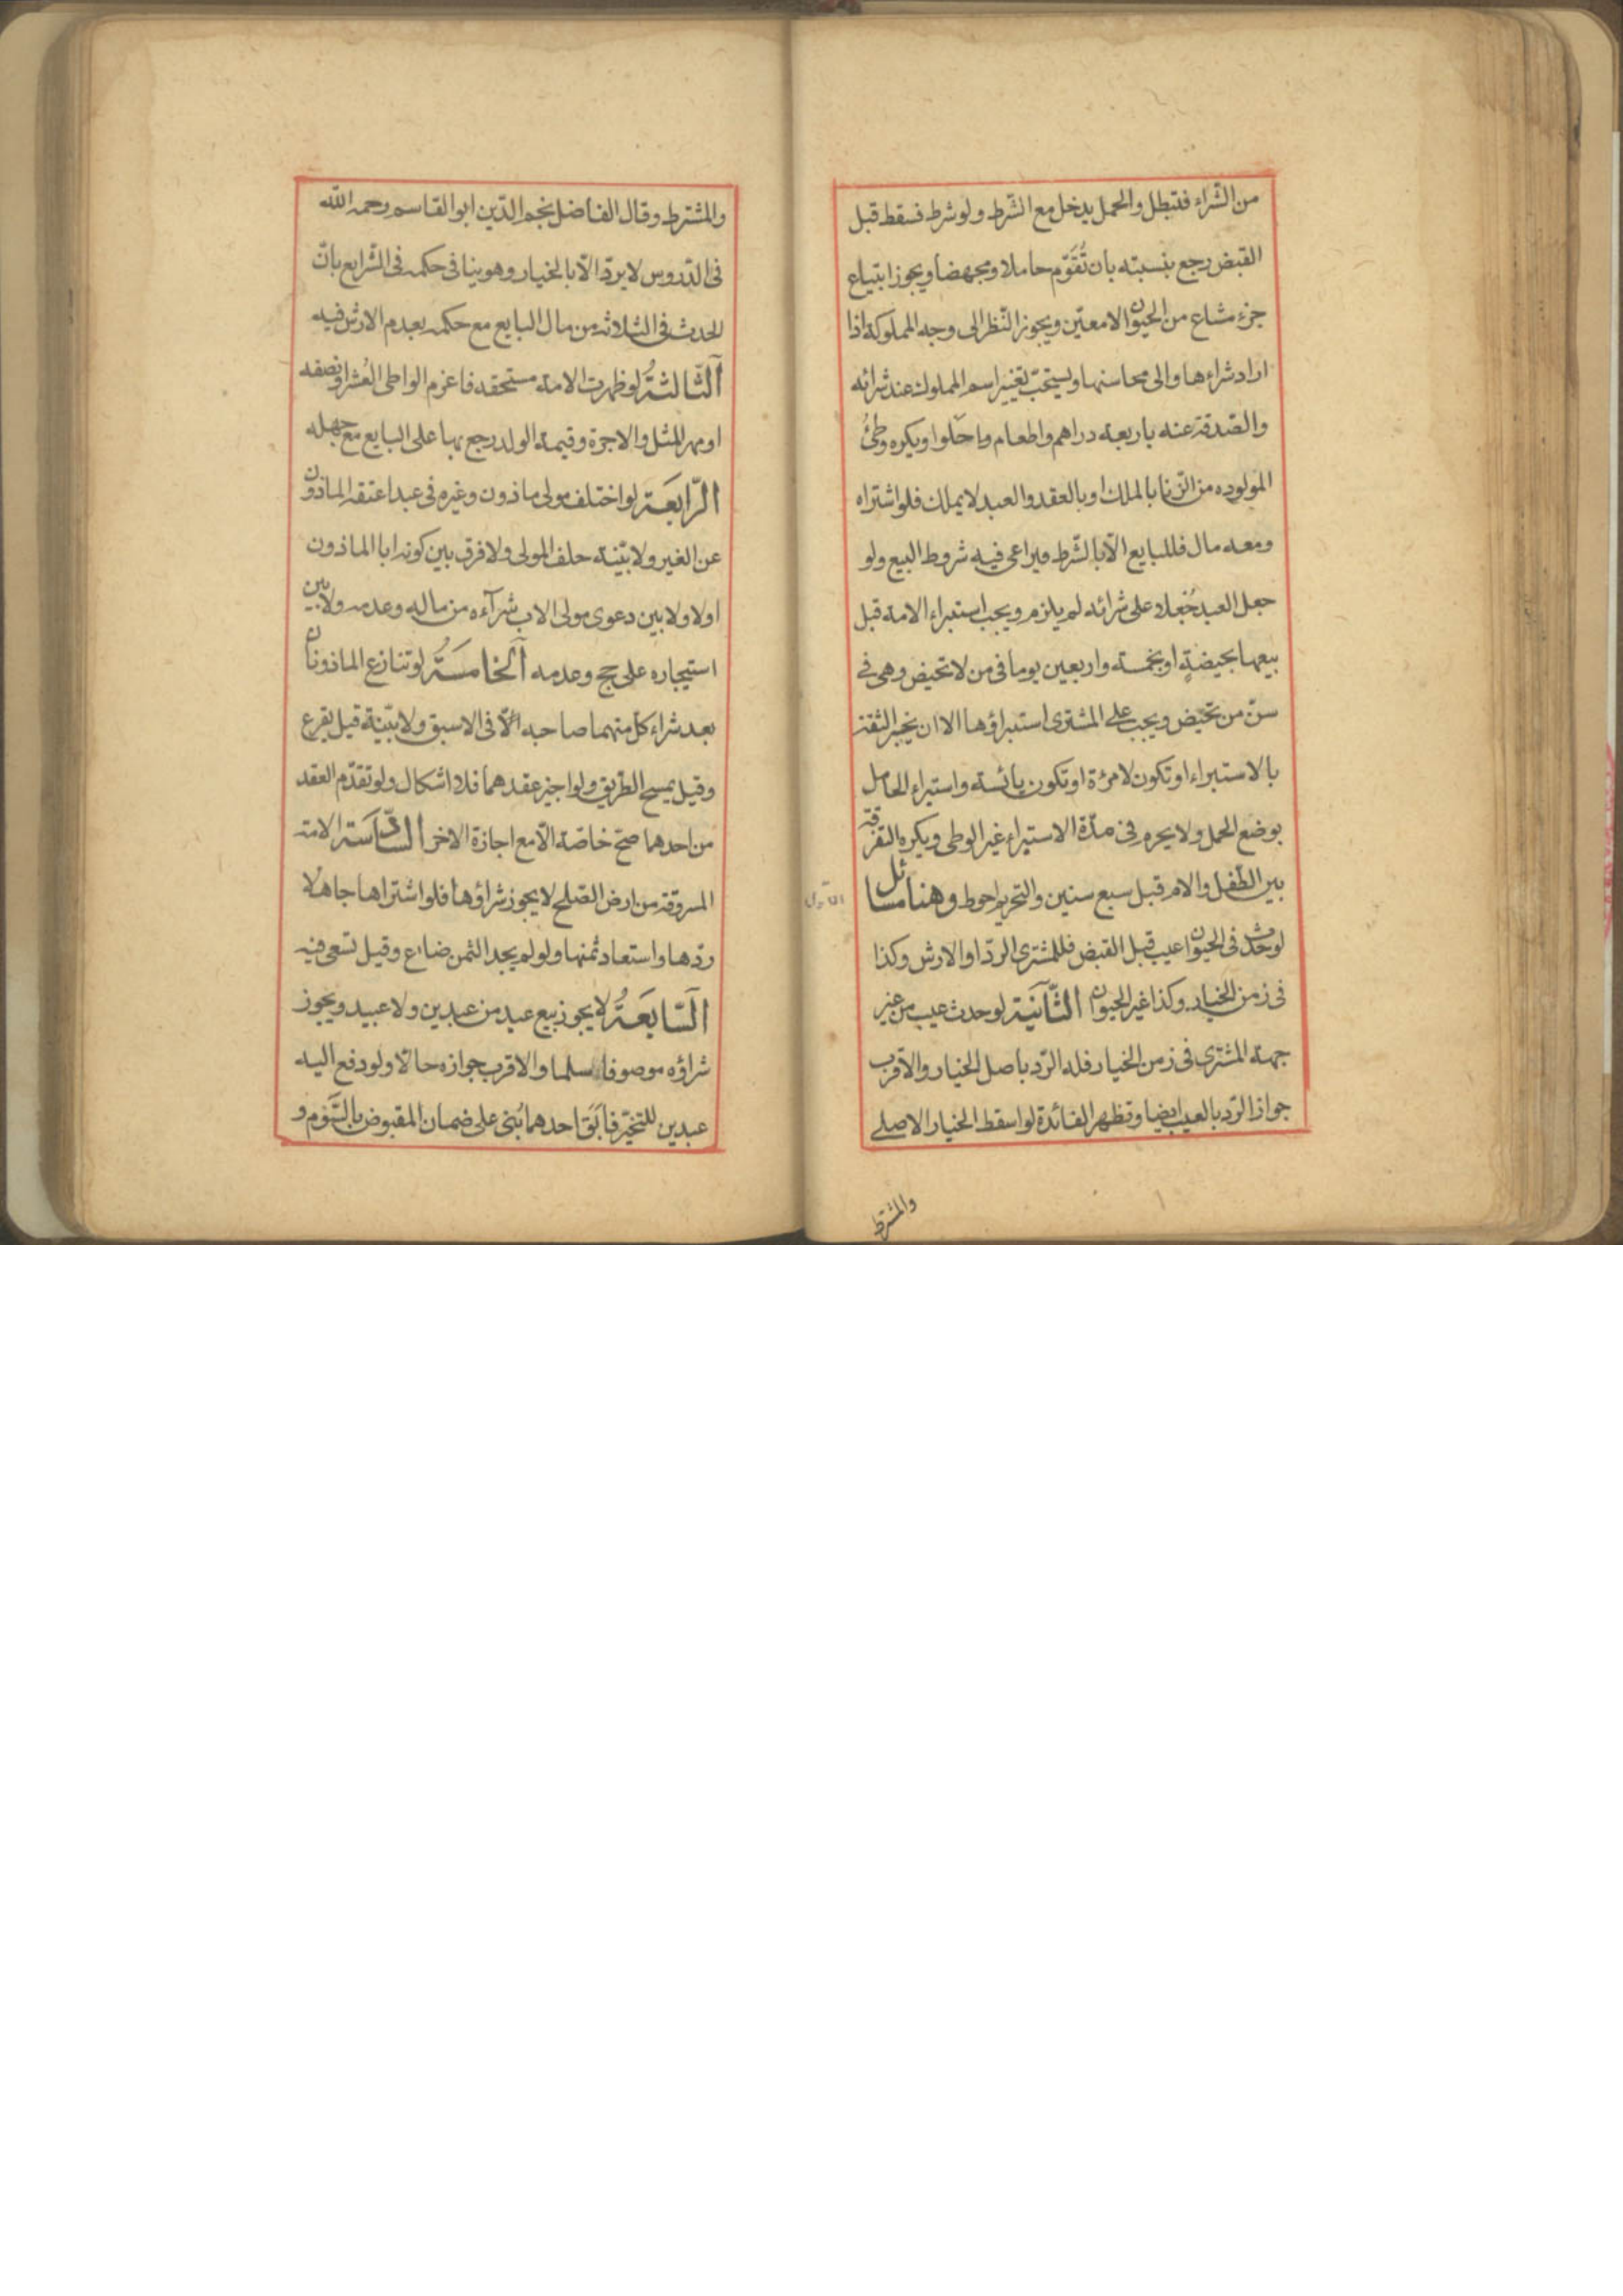 من الشّراء فتبطل والحمل يدخل مع الشّرط ولو شرط فسقط قبل
القبض رجع بنسبته بان تُقَوّم حاملا ومجهضا ويجوز ابتياع
جزء مشاع من الحيوان لا معيّن ويجوز النّظر الى وجه المملوكة اذا
اراد شراءها والى محاسنها ويستحبّ تغيير اسم المملوك عند شرائه
والصّدقة عنه باربعة دراهم واطعامه حلوا ويكره وطئ
المولوده من الزّنا بالملك او بالعقد والعبد لا يملك فلو اشتراه
ومعه مال فللبايع الّا بالشّرط فيراعى فيه شروط البيع ولو
جعل العبد جُعلا على شرائه لم يلزم ويجب استبراء الامة قبل
بيعها بحيضةٍ او بخمسة واربعين يوما فى من لا تحيض وهى فى
سنّ من تحيض ويجب على المشترى استبراؤها الا ان يخبر الثقة
بالاستبراء او تكون لامرئة او تكون يائسة واستبراء الحامل
بوضع الحمل ولا يحرم فى مدّة الاستبراء غير الوطى ويكره التفرقة
بين الطّفل والام قبل سبع سنين والتحريم احوط وهنا مسائل
الاولى
لو حدث فى الحيوان عيب قبل القبض فللمشترى الردّ او الارش وكذا
فى زمن الخيار وكذا غير الحيوان الثّانَية لو حدث عيب من غير
جهة المشترى فى زمن الخيار فله الرّد باصل الخيار والاقرب
جواز الرّد بالعيب ايضا وتظهر الفائدة لو اسقط الخيار الاصلى
والمشترط
والمشترط وقال الفاضل نجم الدّين ابو القاسم رحمه اللّه
فى الدّروس لا يردّ الّا بالخيار وهو ينافى حكمه فى الشّرايع بانّ
الحدث فى الثلاثة من مال البايع مع حكمه بعدم الارش فيه
اَلثّالثةُ لو ظهرت الامة مستحقه فاغرم الواطى العُشر او نصفه
او مهر المثل والاجرة وقيمة الولد رجع بها على البايع مع جهله
الرّابعَة لو اختلف مولى ماذون وغيره فى عبد اعتقه الماذون
عن الغير ولا بيّنة حلف المولى ولا فرق بين كونه ابا الماذون
اولا ولا بين دعوى مولى الاب شرآءه من ماله وعدمه ولا بين
استيجاره على حج وعدمه اَلخامسَةُ لو تنازع الماذونان
بعد شراء كلّ منهما صاحبه فى الاسبق ولا بيّنة قيل يقرع
وقيل يمسح الطريق ولو اجيز عقدهما فلا اشكال ولو تقدّم العقد
من احدهما صحّ خاصّة الّا مع اجازة الاخر السّادسَة الامة
المسروقة من ارض الصّلح لا يجوز شراؤها فلو اشتراها جاهلا
ردّها واستعاد ثمنها ولو لم يجد الثمن ضاع وقيل تسعى فيه
اَلسّابعَةُ لا يجوز بيع عبد من عبدين ولا عبيد ويجوز
شراؤه موصوفا سلما والاقرب جوازه حالّا ولو دفع اليه
عبدين للتخيّر فاَبَقَ احدهما بُنى على ضمان المقبوض بالسَّوم و